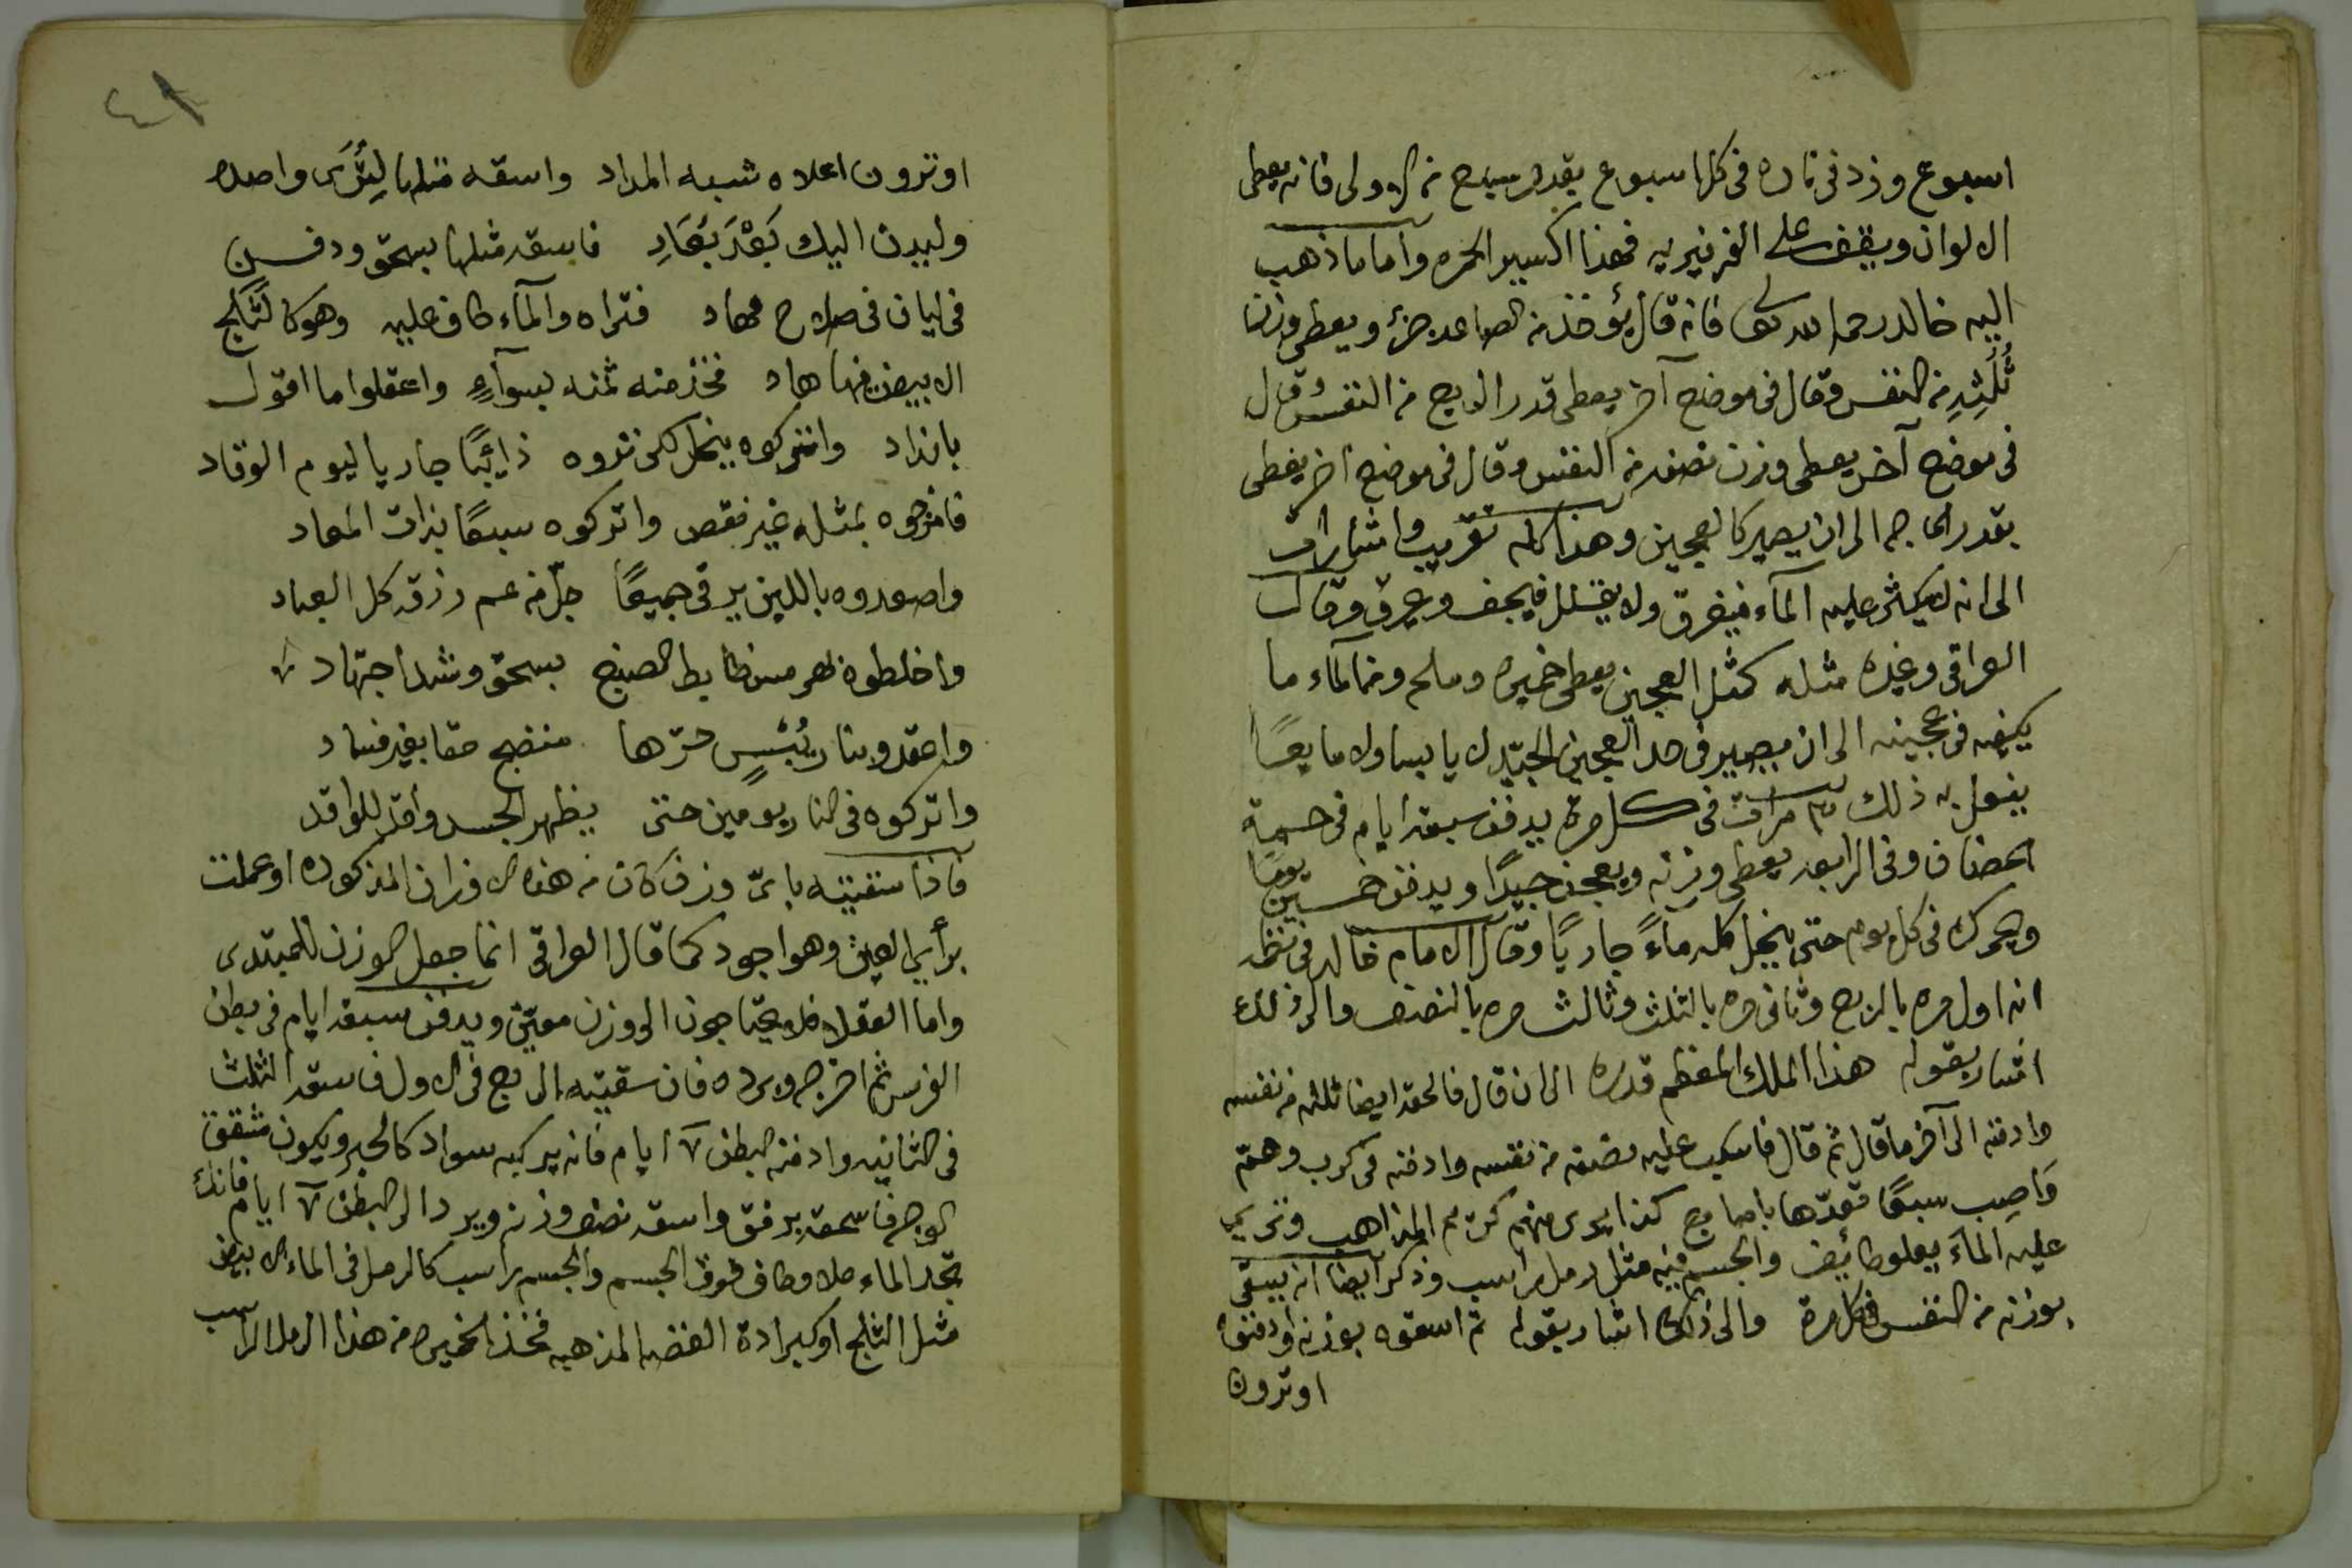 اسبوع وزد في ناره في كل اسبوع بقدر سبع من الاولى فانه يعطى
الالوان ويقف على الفرفيريه فهذا اكسير الحمره واما ما ذهب
اليه خالد رحمه الله تعالى فانه قال يؤخذ من الصاعد جزؤ ويعطى وزن
ثُلُثِهِ من النفس وقال في موضع آخر يعطى قدر الربع من النفس وقال
في موضع آخر يعطى وزن نصفه من النفس وقال في موضع اخر يعطى
بقدر الحاجه الى ان يصير كالعجين وهذا كله تقريب واشارات
الى انه لا يكثر عليه المآء فيغرق ولا يقلل فيجف ويحرق وقال
العراقي وغيره مثله كمثل العجين يعطى خميره وملح ومن المآء ما
يكفيه في عجينه الى ان يصير في حد العجين الجيّد لا يابسا ولا مايعًا
يفعل به ذلك ٣ مرات في كل مرة يدفن سبعة ايام في حمة
الحضان وفي الرابعه يعطى وزنه ويعجن جيدًا ويدفن خمسين يومًا
ويحرك في كل يوم حتى ينحل كله مآءً جاريًا وقال الامام خالد في نظمه
انه اول مره بالربع وثاني مره بالثلث وثالث مره بالنصف والى ذلك
اشار بقوله هذا الملك المعظم قدره الى ان قال فالحقه ايضا ثلثه من نفسه
وادفنه الى آخر ما قال ثم قال فاسكب عليه نصفه من نفسه وادفنه في كرب وهمّ
وَاصِب سبعًا تعدّها باصابع كذا يجرى منهم كرّتم المذاهب وترى
عليه المآء يعلو طائف والجسم فيه مثل رمل راسب وذكر ايضا انه يسقى
بوزنه من النفس في كل مرة والى ذلك اشار بقوله ثم اسقوه بوزنه وادفنوه
اوترون
٤١
اوترون اعلاه شبه المداد واسقه مثلها لِيَثْرَى واصده
وليدن اليك بَعْدَ بَعَادِ فاسقه مثلها بسحق ودفن
في ليان في صلاح مهاد فتراه والمآء طاف عليه وهو كالثلج
الابيض منها هاد فخذ منه ثمنه بسوآءٍ واعقلوا ما اقول
بانذاد واتركوه ينحل كى تروه ذائبًا جاريا ليوم الوقاد
فامزجوه بمثله غير نقص واتركوه سبعًا بذات المعاد
واصعدوه باللين يرقى جميعًا جلّ من عم رزقه كل العباد
واخلطوه بسحق وشد اجتهاد
واعقدو بنار يُبْسٍ حرّها منضج حقا بغير فساد
واتركوه في النار يومين حتى يظهر الجسد واقد للواقد
فاذا سقيته باىّ وزن كان من هذه الاوزان المذكوره او عملت
برأي العين وهو اجود كما قال العراقي انما جعل الوزن للمبتدى
واما العقلا فلا يحتاجون الى وزن معيّن ويدفن سبعة ايام في بطن
الفرس ثم اخرجه وبرده فان سقيته الربع في الاول فاسقه الثلث
في الثانيه وادفنه البطن ٧ ايام فانه يركبه سواد كالحبر ويكون مشقق
الوجه فاسحقه برفق واسقه نصف وزنه ويرد الى البطن ٧ ايام فانك
تجد الماء علا وطاف فوق الجسم والجسم راسب كالرمل في الماء الابيض
مثل الثلج او كبرادة الفضه المذهبه فخذ الخميره من هذا الرمل الراسب